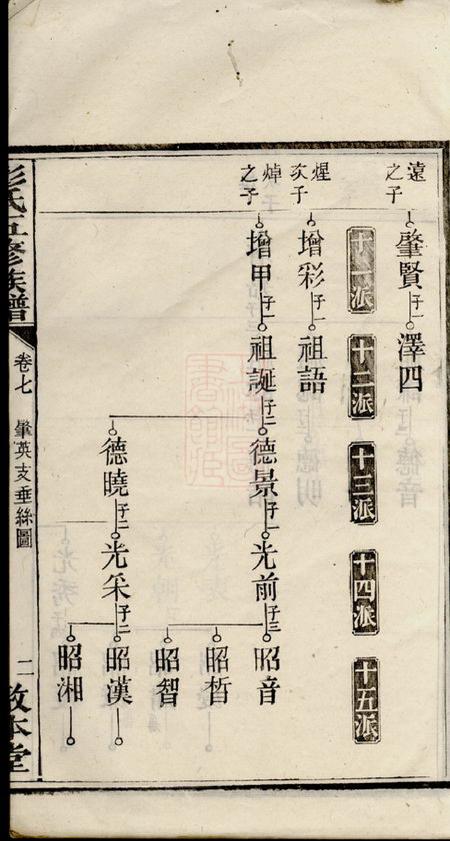 遠之子 肇賢 子一 澤四
十一派 十二派 十三派 十四派 十五派
煋次子 增彩 子一 祖語
焯之子 增甲 子一 祖誕 子二 德景 子一 光前 子三 昭音
昭晳
昭智
德曉 子二 光采 子二 昭漢
昭湘
彭氏五修族譜 卷七 肇英支垂絲圖 二 敦本堂